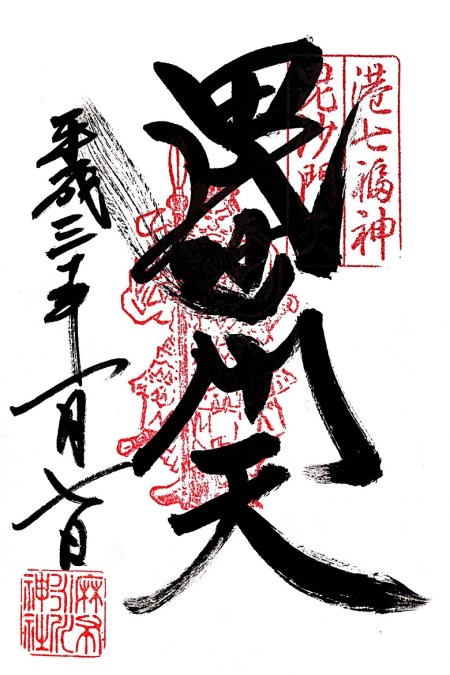 港七福神
毘沙門天
毘沙門天
平成三十年一月七日
麻布
氷川
神社